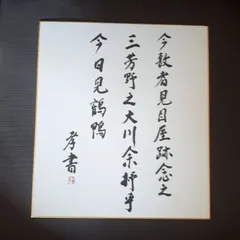 今敷者見目屋跡念之
三芳野之大川余抒乎
今日見鶴鴨
孝書